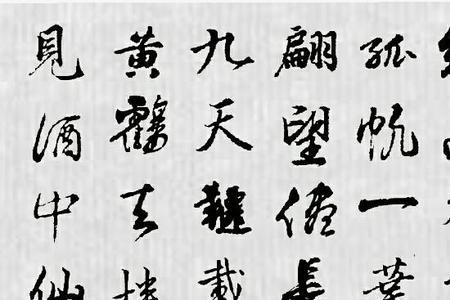 孤帆一葉
翩望儘長
九天韆載
黃鶴去樓
見酒中仙